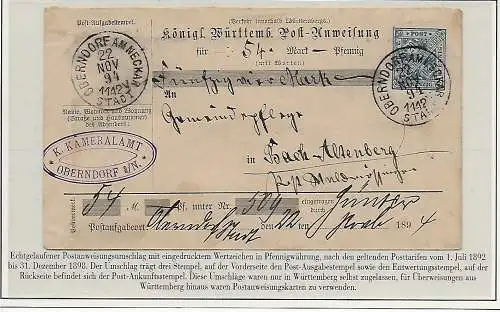 (Verkehr innerhalb Württembergs.)
Post-Aufgabestempel.
Königl. Württemb. Post-Anweisung
für 54. Mark — Pfennig
(mit Worten)
Fünfzig vier Mark
An
Gemeindepflege
in Bach-Altenberg
OBERNDORF AM NECKAR
22
NOV
94
11-12V
STADT
OBERNDORF AM NECKAR
22
94
11-12V
STADT
POST
Name, Wohnort und Wohnung
(Straße und Hausnummer)
des Absenders.
K. KAMERALAMT
OBERNDORF a/N.
54 M. Pf. unter Nr. 509 eingetragen
Postaufgabeort Oberndorf Stadt den 22 Novb 1894
Echtgelaufener Postanweisungsumschlag mit eingedrucktem Wertzeichen in Pfennigwährung, nach den geltenden Posttarifen vom 1. Juli 1892
bis 31. Dezember 1898. Der Umschlag trägt drei Stempel, auf der Vorderseite den Post-Ausgabestempel sowie den Entwertungsstempel, auf der
Rückseite befindet sich der Post-Ankunftsstempel. Diese Umschläge waren nur in Württemberg selbst zugelassen, für Überweisungen aus
Württemberg hinaus waren Postanweisungskarten zu verwenden.